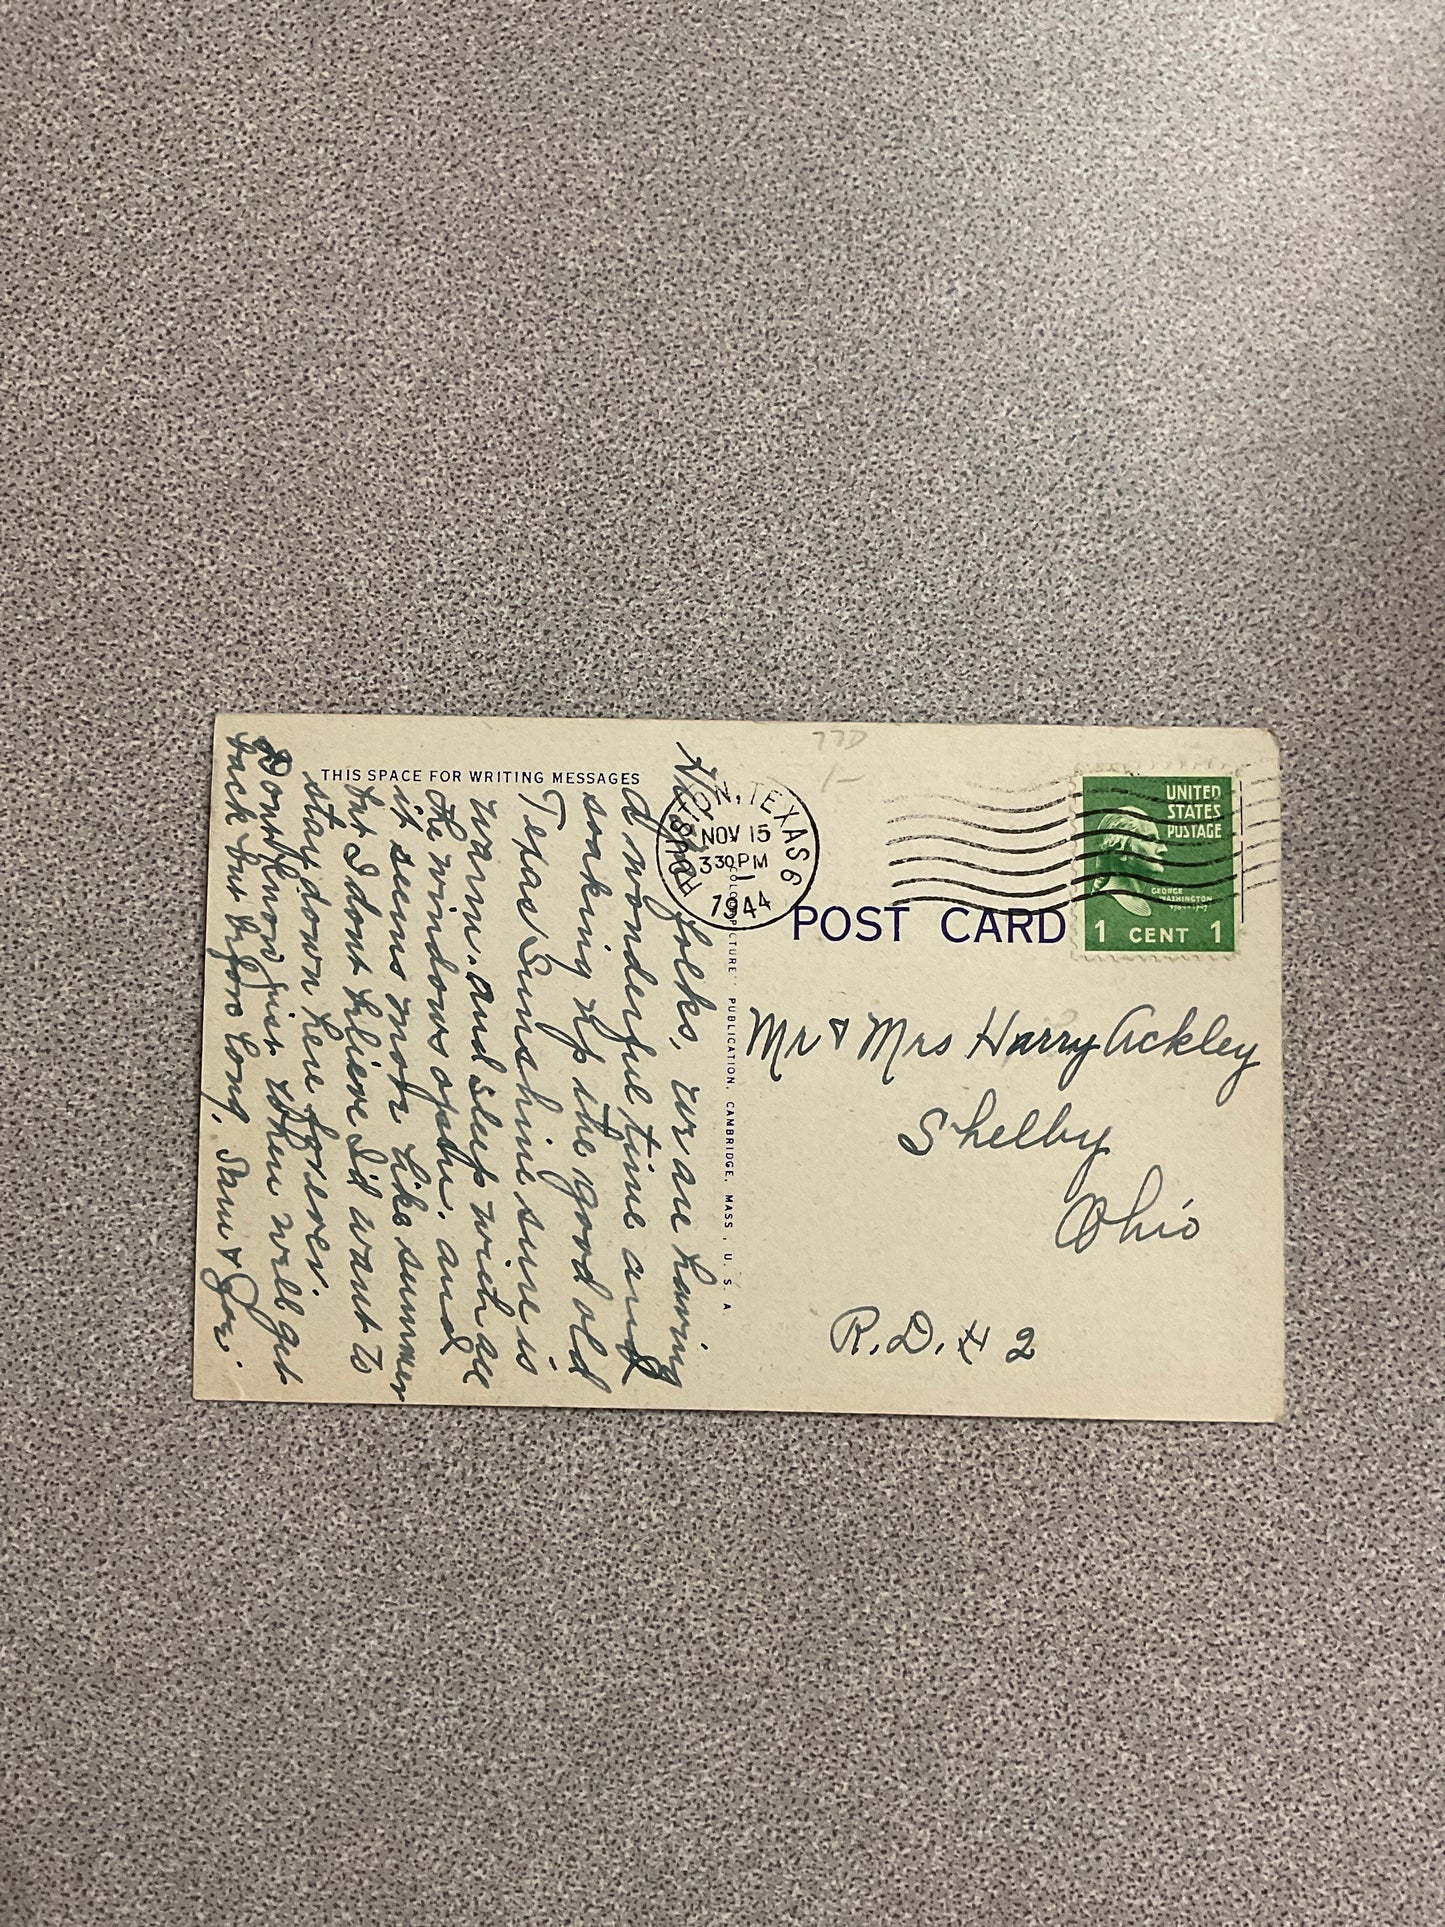 THIS SPACE FOR WRITING MESSAGES
folks, we are having
a wonderful time and
soaking up the good old
Texas Sunshine sure is
warm. and sleep with all
the windows open. and
it seems more like summer
but I dont believe I'd want to
stay down here forever.
Dont know just when will get
back but before long. Sam & Joe.
COLOR PICTURE PUBLICATION, CAMBRIDGE, MASS., U. S. A.
77D
1-
HOUSTON, TEXAS 6
NOV 15
330PM
1944
UNITED
STATES
POSTAGE
GEORGE
WASHINGTON
1 CENT 1
POST CARD
Mr & Mrs Harry Ackley
Shelby
Ohio
R.D. # 2